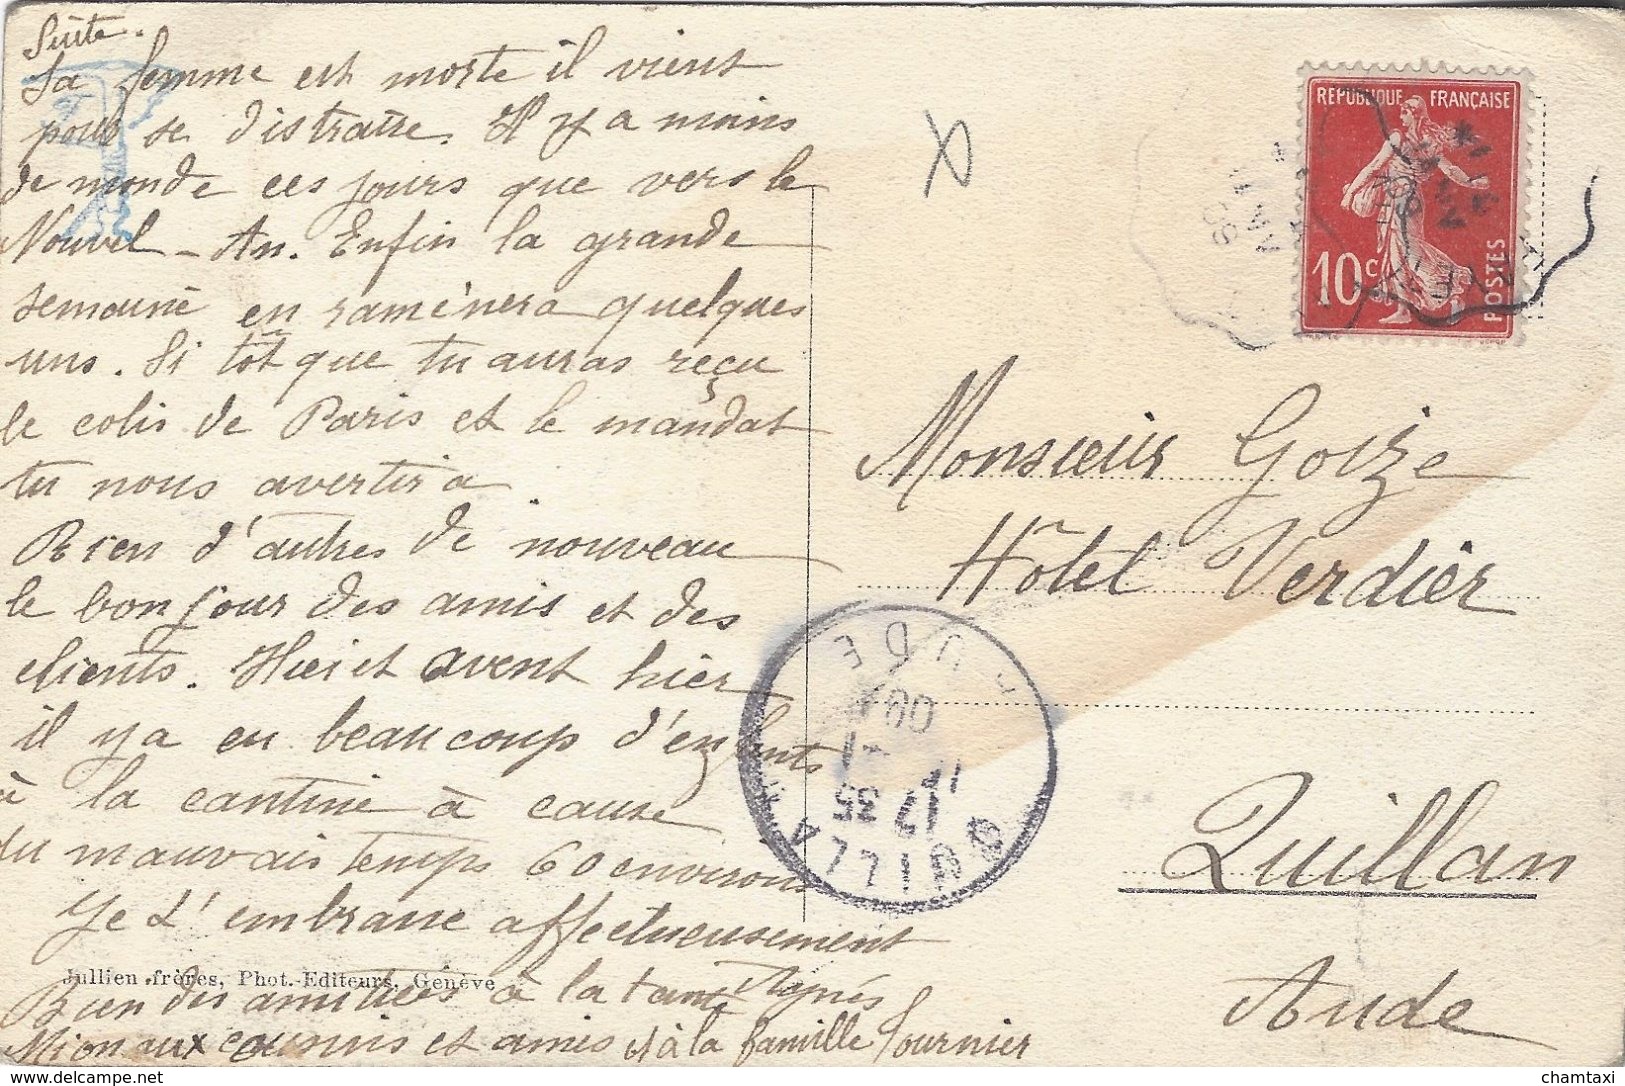 Suite.
Sa femme est morte il vient
pour se distraire. Il y a moins
de monde ces jours que vers le
Nouvel - An. Enfin la grande
semaine en raménera quelques
uns. Si tôt que tu auras reçu
le colis de Paris et le mandat
tu nous avertira.
Rien d'autres de nouveau
le bonjour des amis et des
clients. Hier et avent hier
il y a eu beaucoup d'enfants
à la cantine à cause
du mauvais temps 60 environs
Je t'embrasse affectueusement
Jullien frères, Phot.-Editeurs, Genève
Bien des amitiées à la tante Agnés
aux cousins et amies et à la famille Fournier
REPUBLIQUE FRANÇAISE
10c
POSTES
Monsieur Goize
Hôtel Verdier
Quillan
Aude
QUILLAN
AUDE
17 35
09
chamtaxi
https://www.delcampe.net